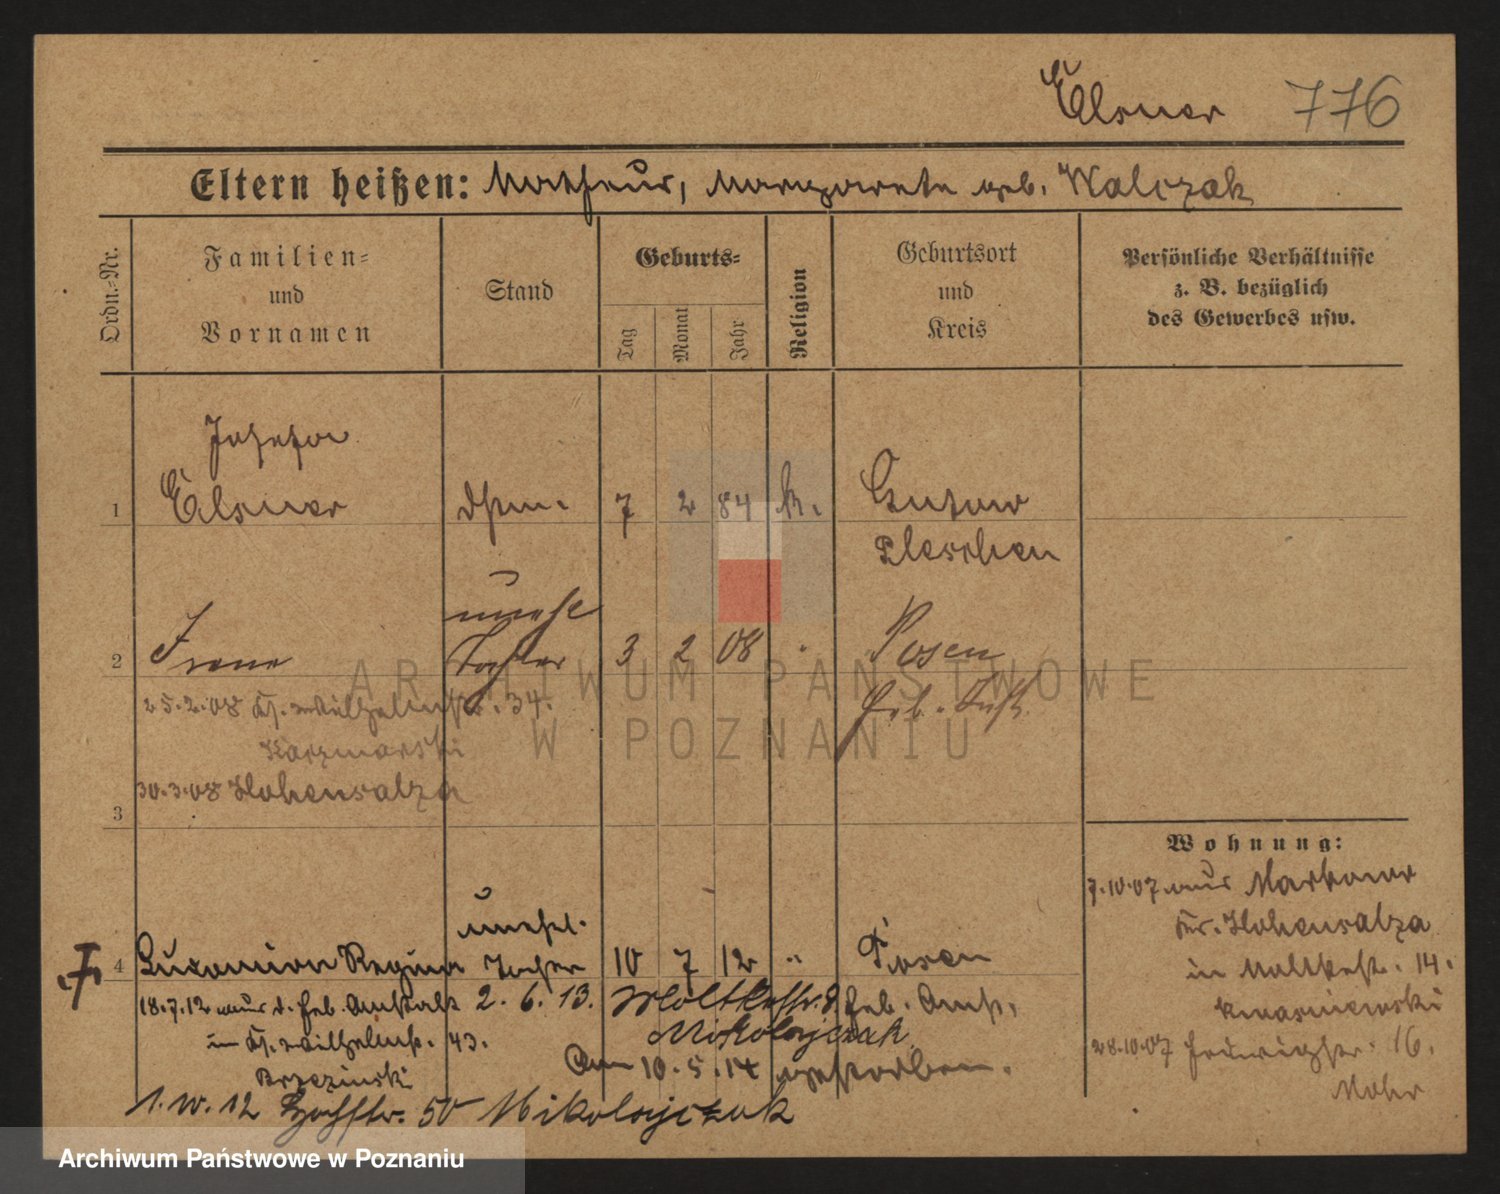 Elsner 776
Eltern heißen: Matheus, Margarete geb. Walczak
Ordn.=Nr.
Familien=
und
Vornamen
Stand
Geburts=
Tag
Monat
Jahr
Religion
Geburtsort
und
Kreis
Persönliche Verhältnisse
z. B. bezüglich
des Gewerbes usw.
Josefa
1 Elsner 7 2 84 k. Gutow
Pleschen
unehel
2 Irene Tochter 3 2 08 " Posen
Geb. Anst.
25.2.08 Kl. Wilhelmstr. 34.
Kaczmarski
30.3.08 Hohensalza
3
Wohnung:
7.10.07 aus Markowo
Kr. Hohensalza
in Moltkestr. 14.
Kwasniewski
28.10.07 Hedwigstr. 16.
Mohr
unehel.
4 Regina Tochter 10 7 12 " Posen
18.7.12 aus d. Geb. Anstalt 2. 6. 13. Moltkestr. 8 Geb. Anst.
in Kl. Wilhelmstr. 43. Mikolajczak
Brzezinski Am 10.5.14 gestorben.
50 Mikolajczak
ARCHIWUM PAŃSTWOWE
W POZNANIU
Archiwum Państwowe w Poznaniu